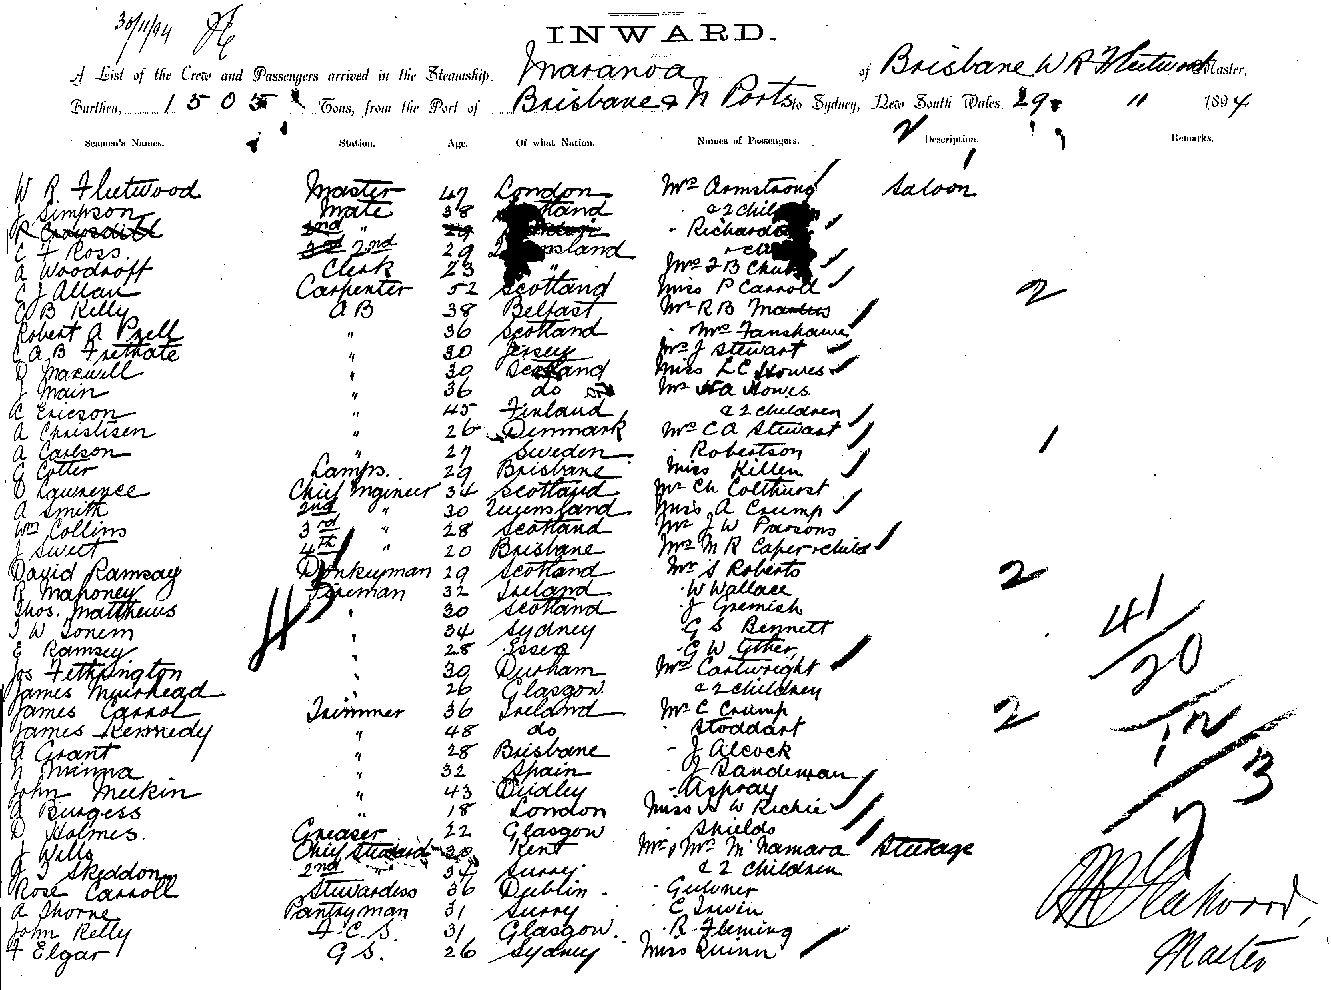 30/11/94
INWARD.
A List of the Crew and Passengers arrived in the Steamship, Maranoa of Brisbane W R Fleetwood Master,
Burthen, 1505 Tons, from the Port of Brisbane & N Ports to Sydney, New South Wales, 29 " 1894
Seamen's Names. Station. Age. Of what Nation. Names of Passengers. Description. Remarks.
W R Fleetwood Master 47 London Mrs Armstrong Saloon
J Simpson Mate 38 & 2
2nd " 29 - Richards
C F Ross 2nd 29
A Woodroff Clerk 23 " Mrs J B
E J Allan Carpenter 52 Scotland Miss P Carroll 2
C B Kelly A B 38 Belfast Mr R B
Robert A Prell " 36 Scotland - Mrs Fanshawe
C A B " 30 Jersey Mrs J Stewart
D Maxwell " 30 Scotland Miss L C Howes
J Main " 36 do Mrs H A Howes
C Ericson " 45 Finland & 2 children
A Christisen " 26 Denmark Mrs C A Stewart
A Carlson " 27 Sweden - Robertson 1
G Cotter Lamps. 29 Brisbane Miss Killen
D Lawrence Chief Engineer 34 Scotland Mr Ch Colthurst
A Smith 2nd " 30 Queensland Miss A Crump
Wm Collins 3rd 28 Scotland Mr J W Parsons
J Sweet 4th " 20 Brisbane Mrs M R Caper & child
David Ramsay Donkeyman 29 Scotland Mr S Roberts 2
R Mahoney Fireman 32 Ireland - W Wallace
Thos. Matthews " 30 Scotland - J Gremish 41
J W Sonem " 34 Sydney - G S Bennett
E Ramsey " 28 Essex - G W Gther 20
Jos Fethpington " 30 Durham Mrs Cartwright
James Muirhead " 26 Glasgow & 2 children
James Carrol Trimmer 36 Ireland Mr C Crump 2
James Kennedy " 48 do - Stoddart 12
A Grant " 28 Brisbane - J Alcock
N Minna " 32 Spain - J Sandeman 3
John Meekin " 43 Dudley - Aspray
A Burgess " 18 London Miss A W Richie
D Holmes. Greaser 22 Glasgow - Shields 7
J Wells Chief Steward 30 Kent Mr & Mrs McNamara Steerage
J T Skeddon 2nd " 34 Surry & 2 children
Rose Carroll Stewardess 36 Dublin - Gutner
A Thorne Pantryman 31 Surry - E Irwin
John Kelly F. C. S. 31 Glasgow - R Fleming
F Elgar G S. 26 Sydney Miss Quinn
43
W R Fleetwood,
Master